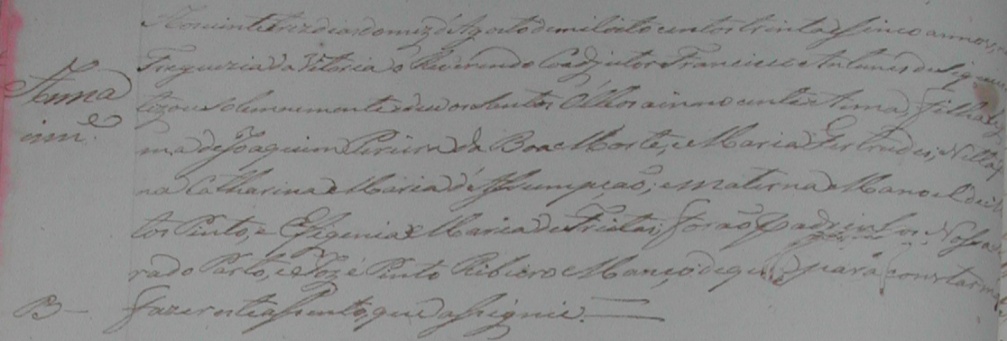 Aos vinte e treis dias do mez de Agosto de mil oito centos trinta, e sinco annos, n
Freguezia da Vitoria o Reverendo Coadjutor Francisco Antunes de Siqueira
Anna
tizou solemnemente e deu os Santos Olhos a innocente Anna, filha legi
inn.e
ma de Joaquim Pereira da Boa Morte, e Maria Gertrudes; Netta p
na Catharina Maria d'Assumpção; e materna Manoel de
tos Pinto, e Efigenia Maria de Freitas; forão Padrinhos Nossa
ra do Parto, e Jozé Pinto Ribeiro Manço, de que para constar m
B - fazer este assento, que assignei.